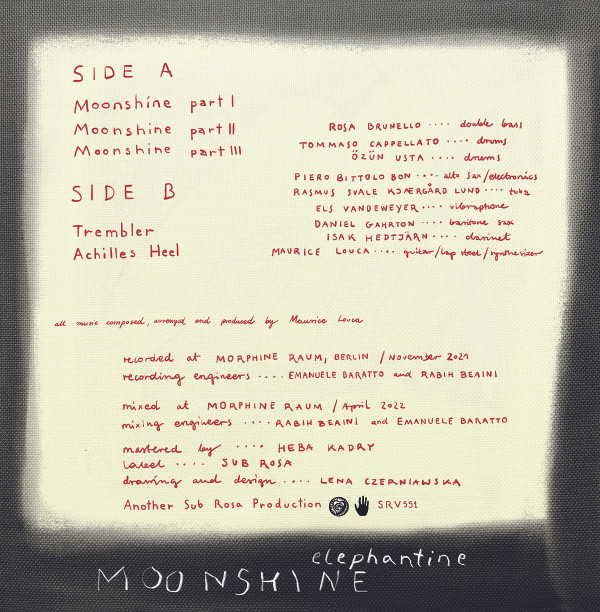 SIDE A
Moonshine part I
Moonshine part II
Moonshine part III
SIDE B
Trembler
Achilles Heel
ROSA BRUNELLO .... double bass
TOMMASO CAPPELLATO .... drums
ÖZÜN USTA .... drums
PIERO BITTOLO BON .... alto sax/electronics
RASMUS SVALE KJÆRGÅRD LUND .... tuba
ELS VANDEWEYER .... vibraphone
DANIEL GAHRTON .... baritone sax
ISAK HEDTJÄRN .... clarinet
MAURICE LOUCA .... guitar/lap steel/synthesizer
all music composed, arranged and produced by Maurice Louca
recorded at MORPHINE RAUM, BERLIN / November 2021
recording engineers .... EMANUELE BARATTO and RABIH BEAINI
mixed at MORPHINE RAUM / April 2022
mixing engineers .... RABIH BEAINI and EMANUELE BARATTO
mastered by .... HEBA KADRY
Label .... SUB ROSA
drawing and design .... LENA CZERNIAWSKA
Another Sub Rosa Production SRV551
elephantine
MOONSHINE